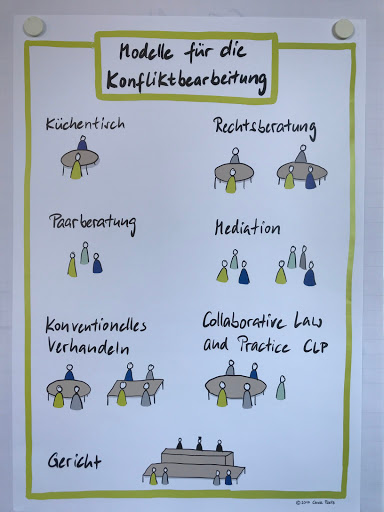 Modelle für die
Konfliktbearbeitung
Küchentisch
Rechtsberatung
Paarberatung
Mediation
Konventionelles
Verhandeln
Collaborative Law
and Practice CLP
Gericht